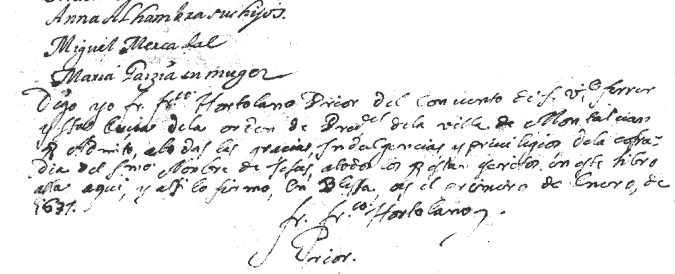 Anna Alhambra sus hijos.
Miguel Mercadal
Maria Garzia su muger
Digo yo fr. fr.co Hortolano Prior del Conuento de S. Vi.e ferrer
y sta Lucia dela orden de Pred.es dela villa de Montalvan
q Admito, a todas las gracias, Indulgencias y priuilegios dela cofra-
dia del ssmo Nombre de Jesus, a todos los q estan escritos en este libro
asta aqui, y assi lo firmo, en Blesa, a primero de Enero, de
1637.
fr. fr.co Hortolano
Prior.